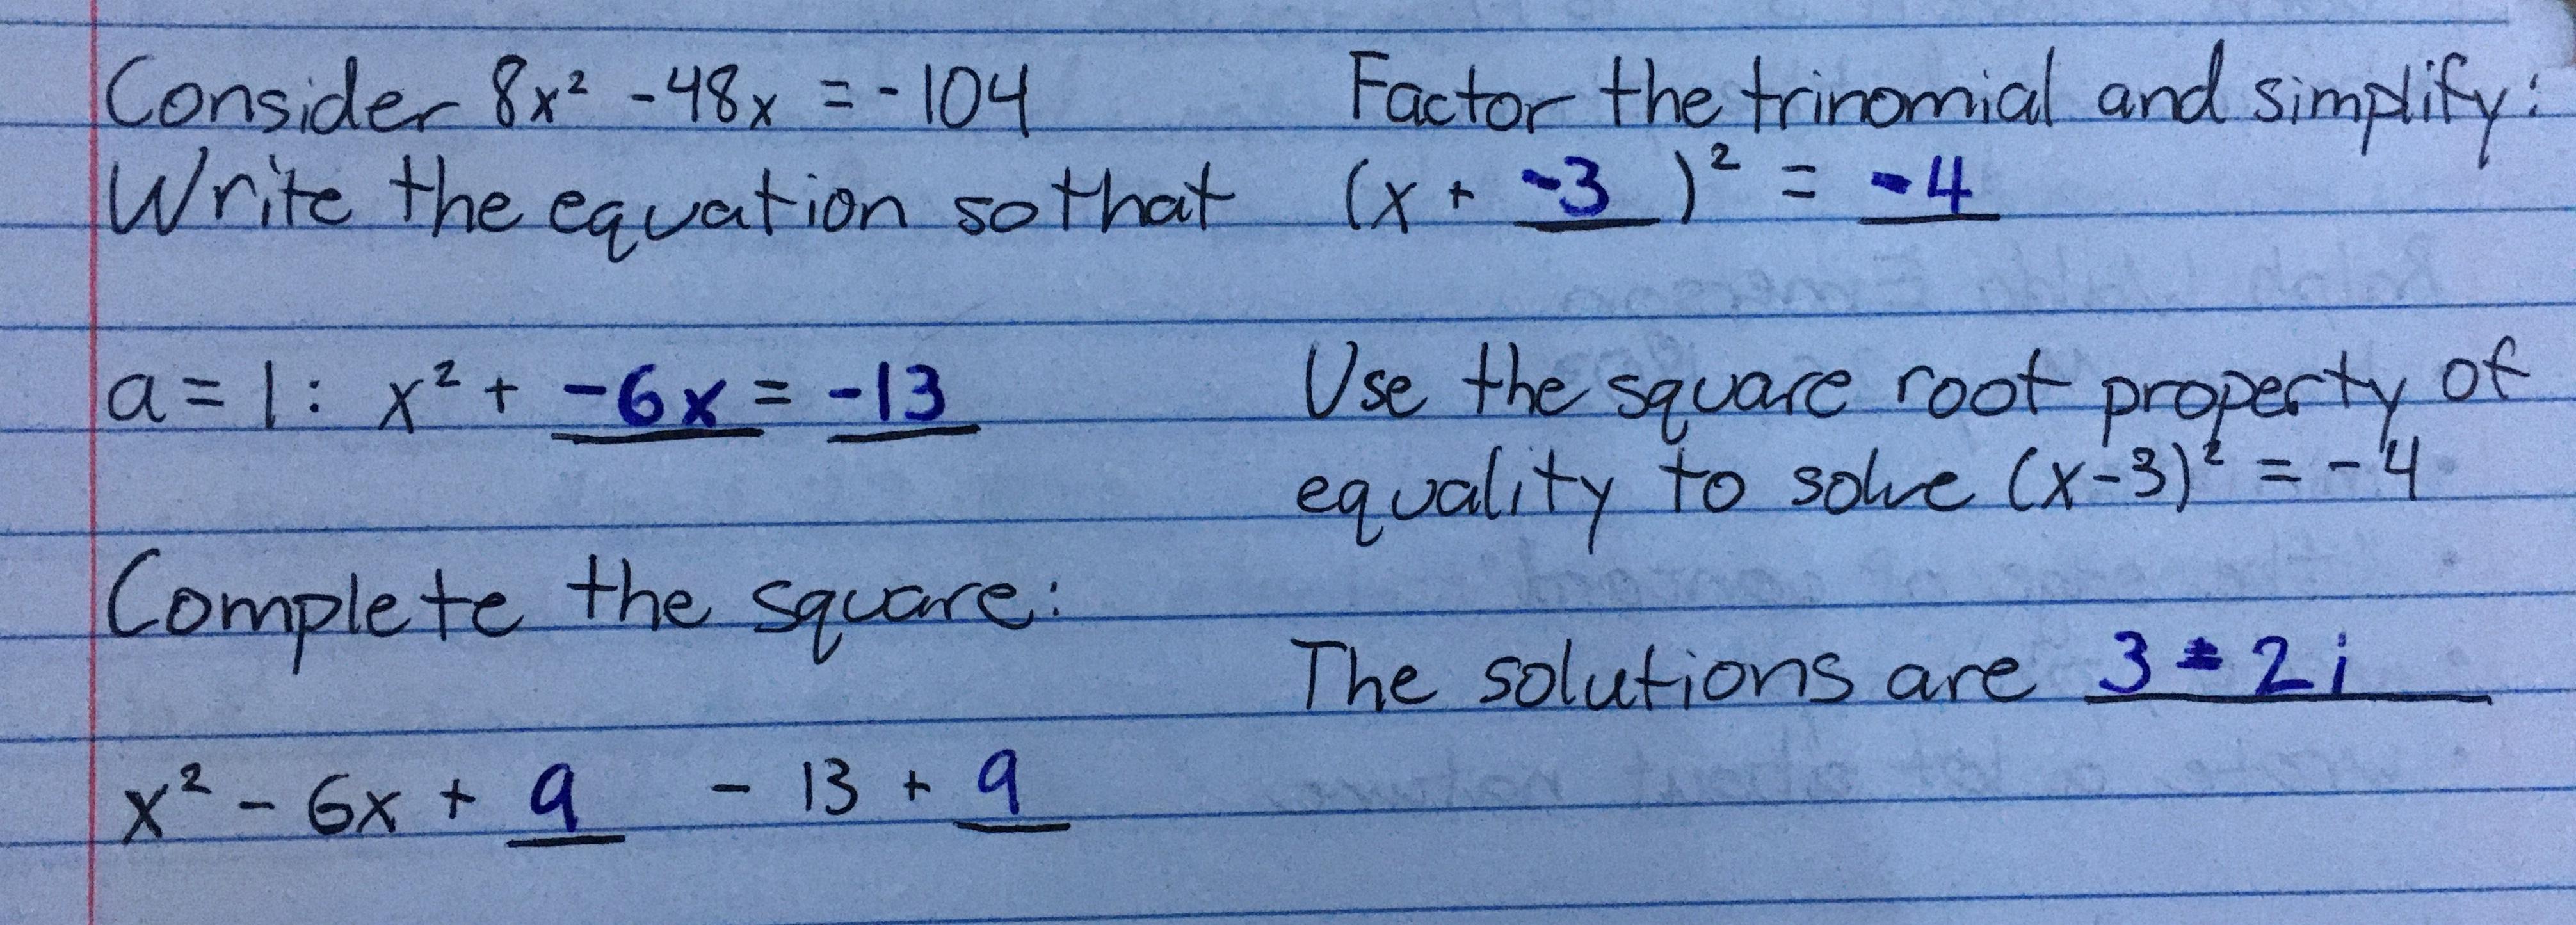 Consider 8x² - 48x = -104
Write the equation so that
a = 1: x² + -6x = -13
Complete the square:
x² - 6x + 9 - 13 + 9
Factor the trinomial and simplify:
(x + -3)² = -4
Use the square root property of
equality to solve (x-3)² = -4
The solutions are 3 ± 2i